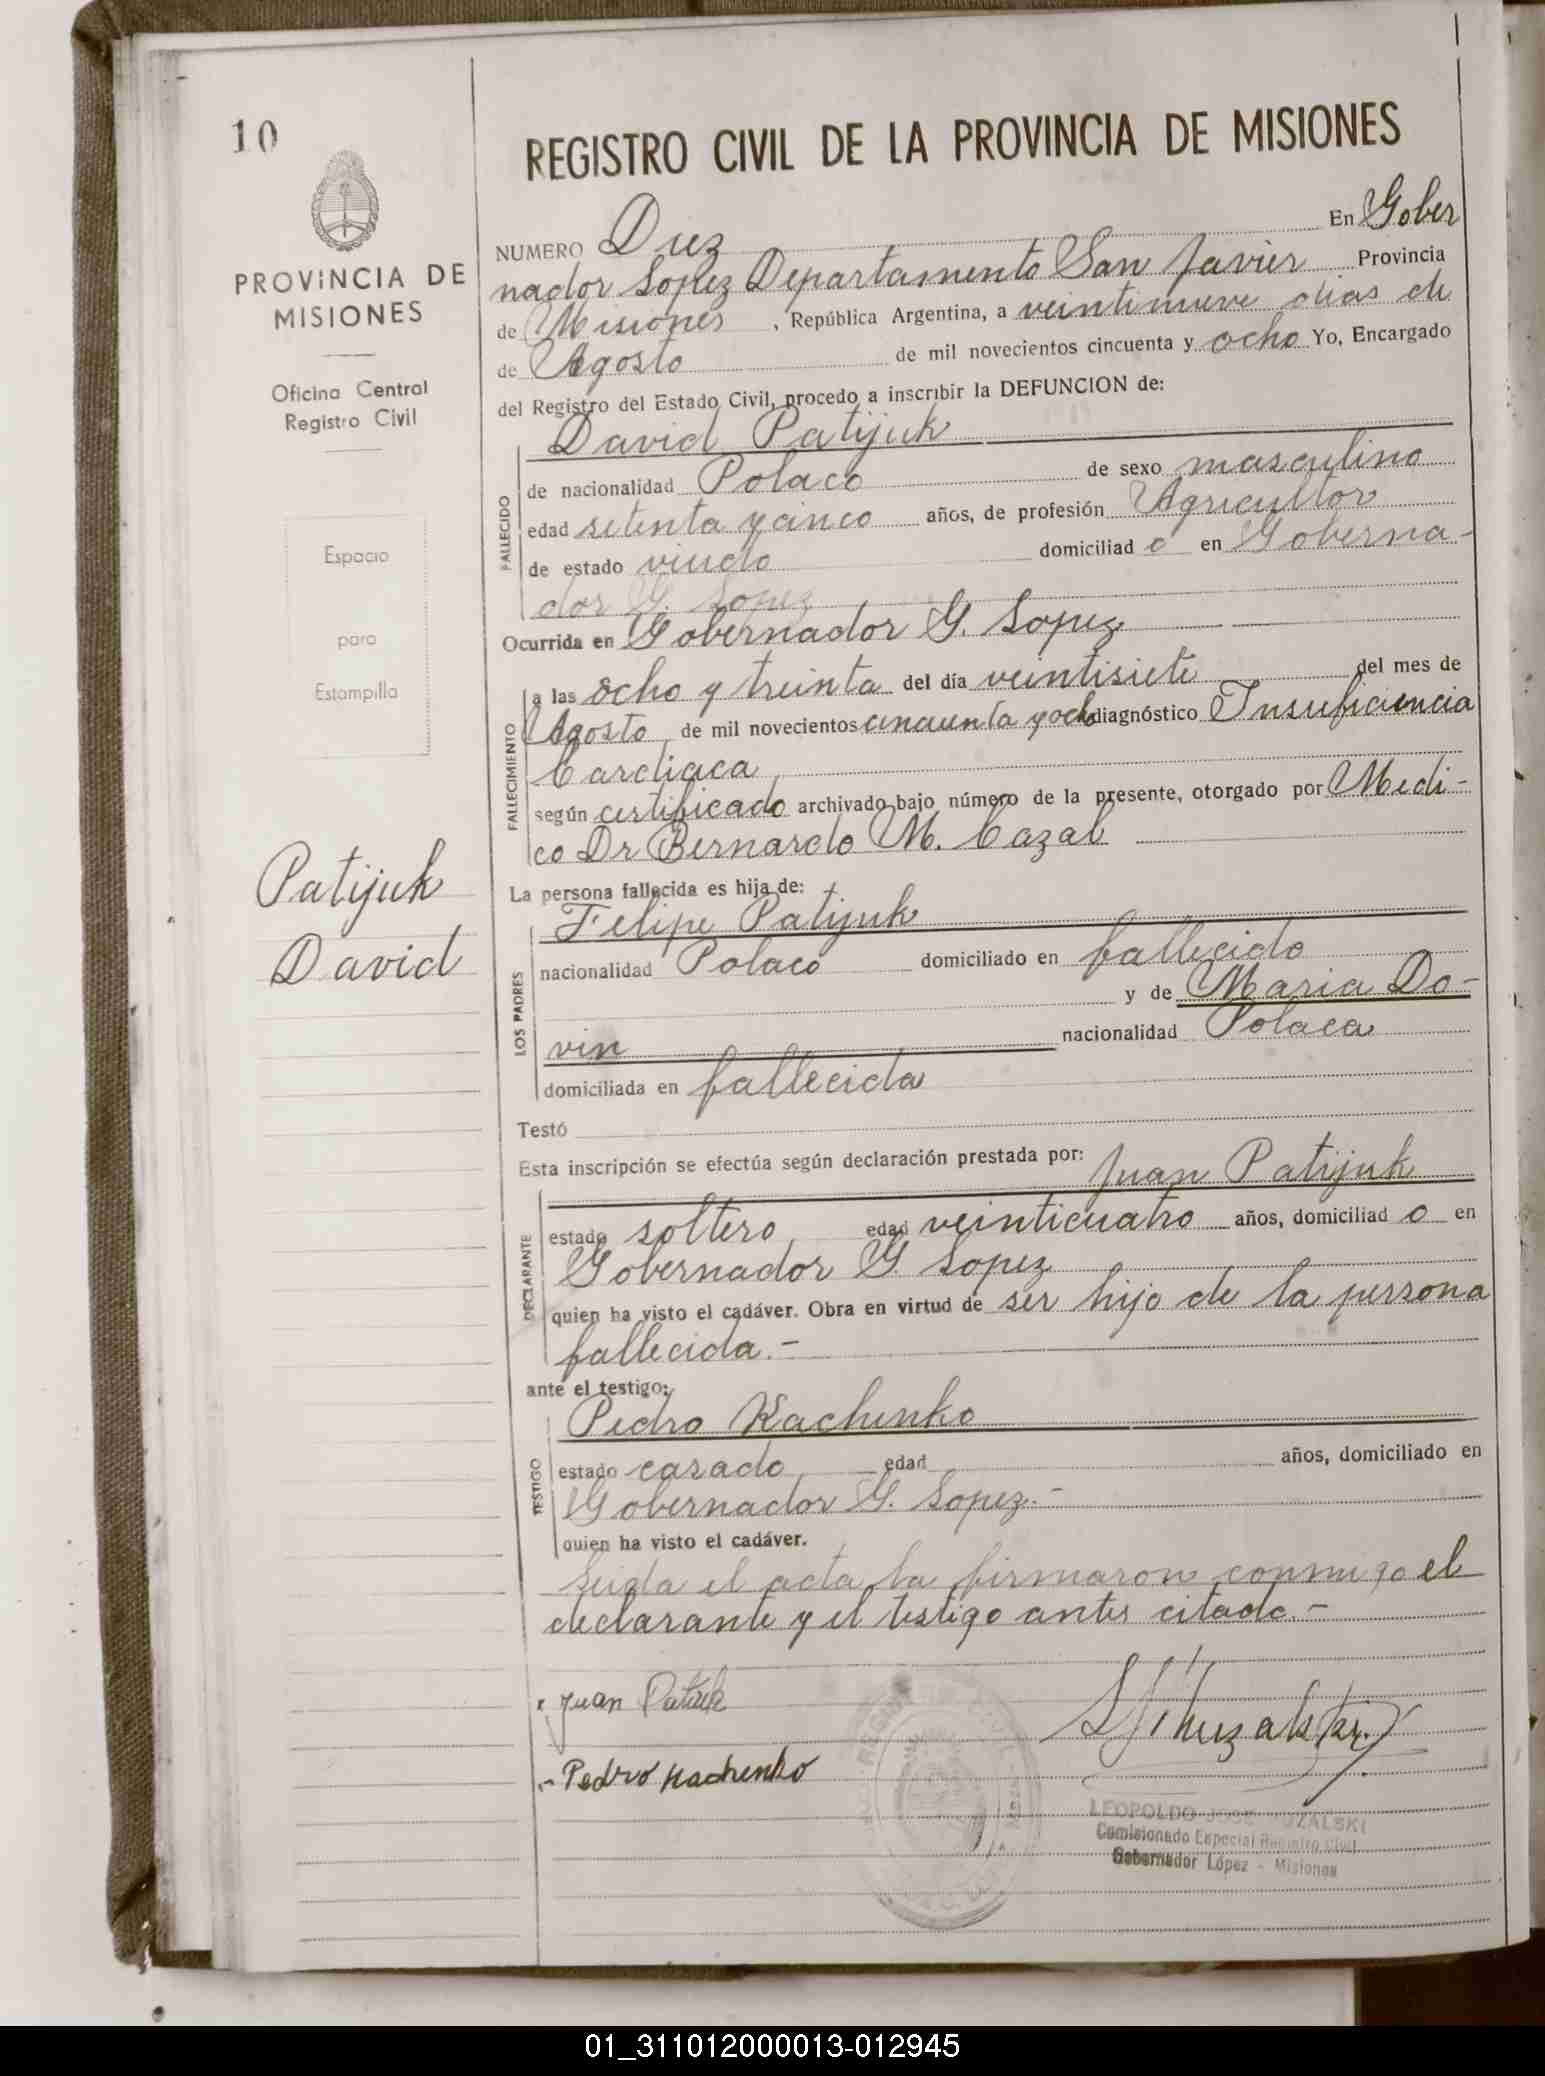 10
PROVINCIA DE
MISIONES
Oficina Central
Registro Civil
Espacio
para
Estampilla
Patijuk
David
REGISTRO CIVIL DE LA PROVINCIA DE MISIONES
NUMERO Diez En Gober
nador Lopez Departamento San Javier Provincia
de Misiones, República Argentina, a veintinueve dias de
de Agosto de mil novecientos cincuenta y ocho Yo, Encargado
del Registro del Estado Civil, procedo a inscribir la DEFUNCION de:
FALLECIDO
David Patijuk
de nacionalidad Polaco de sexo masculino
edad setenta y cinco años, de profesión Agricultor
de estado viudo domiciliad o en Goberna-
dor G. Lopez
Ocurrida en Gobernador G. Lopez
FALLECIMIENTO
a las ocho y treinta del día veintisiete del mes de
Agosto de mil novecientos cincuenta y ocho diagnóstico Insuficiencia
Cardiaca
según certificado archivado bajo número de la presente, otorgado por Medi-
co Dr Bernardo M. Cazal
La persona fallecida es hija de:
LOS PADRES
Felipe Patijuk
nacionalidad Polaco domiciliado en fallecido
y de Maria Do-
vin nacionalidad Polaca
domiciliada en fallecida
Testó
Esta inscripción se efectúa según declaración prestada por: Juan Patijuk
DECLARANTE
estado soltero edad veinticuatro años, domiciliad o en
Gobernador G. Lopez
quien ha visto el cadáver. Obra en virtud de ser hijo de la persona
fallecida.-
ante el testigo:
Pedro Kachenko
TESTIGO
estado casado edad años, domiciliado en
Gobernador G. Lopez.-
quien ha visto el cadáver.
Leida el acta la firmaron conmigo el
declarante y el testigo antes citado.-
Juan
Pedro Kachenko
LEOPOLDO JOSE
Comisionado Especial Registro Civil
Gobernador López - Misiones
01_311012000013-012945